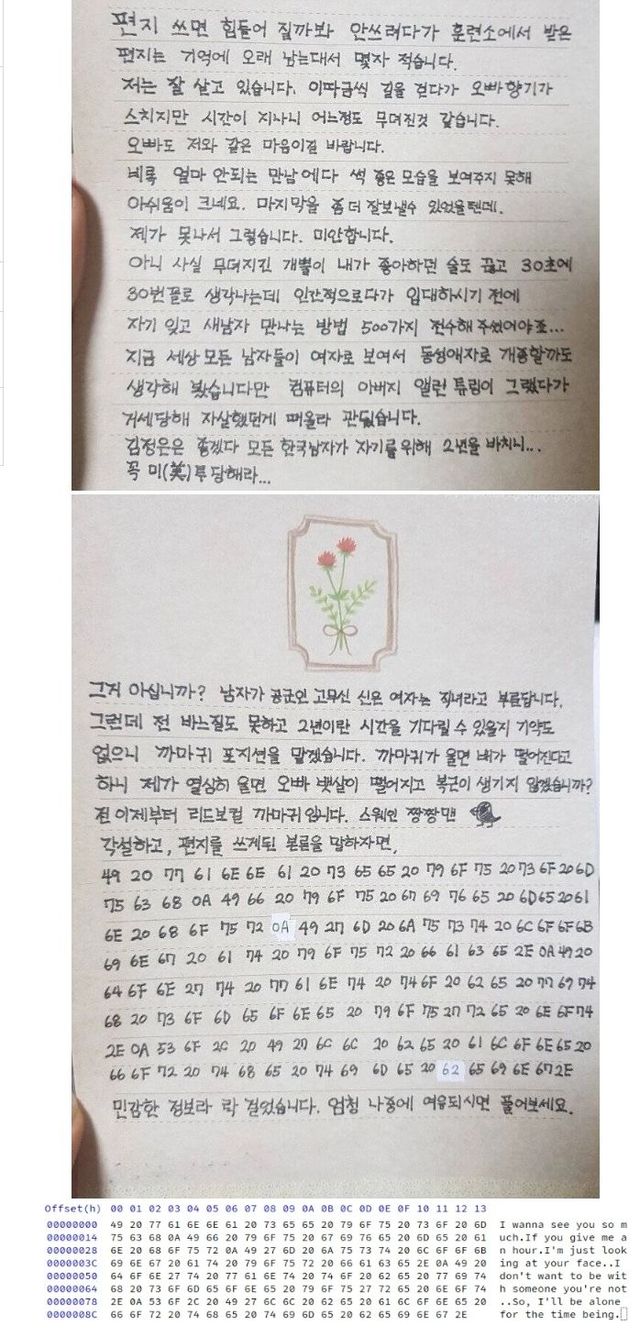 편지 쓰면 힘들어 질까봐 안쓰려다가 훈련소에서 받은
편지는 기억에 오래 남는대서 몇자 적습니다.
저는 잘 살고 있습니다. 이따금씩 길을 걷다가 오빠향기가
스치지만 시간이 지나니 어느정도 무뎌진것 같습니다.
오빠도 저와 같은 마음이길 바랍니다.
비록 얼마 안되는 만남에다 썩 좋은 모습을 보여주지 못해
아쉬움이 크네요. 마지막을 좀 더 잘보낼수 있었을텐데.
제가 못나서 그렇습니다. 미안합니다.
아니 사실 무뎌지긴 개뿔이 내가 좋아하던 술도 끊고 30초에
30번꼴로 생각나는데 인간적으로다가 입대하시기 전에
자기 잊고 새남자 만나는 방법 500가지 전수해 주셨어야죠...
지금 세상 모든 남자들이 여자로 보여서 동성애자로 개종할까도
생각해 봤습니다만 컴퓨터의 아버지 앨런 튜링이 그랬다가
거세당해 자살했던게 떠올라 관뒀습니다.
김정은은 좋겠다 모든 한국남자가 자기를 위해 2년을 바치니...
꼭 미(美)투 당해라...
그거 아십니까? 남자가 공군인 고무신 신은 여자는 직녀라고 부른답니다.
그런데 전 바느질도 못하고 2년이란 시간을 기다릴 수 있을지 기약도
없으니 까마귀 포지션을 맡겠습니다. 까마귀가 울면 배가 떨어진다고
하니 제가 열심히 울면 오빠 뱃살이 떨어지고 복근이 생기지 않겠습니까?
전 이제부터 리드보컬 까마귀입니다. 스웨인 짱짱맨
각설하고, 편지를 쓰게된 본론을 말하자면,
49 20 77 61 6E 6E 61 20 73 65 65 20 79 6F 75 20 73 6F 20 6D
75 63 68 0A 49 66 20 79 6F 75 20 67 69 76 65 20 6D 65 20 61
6E 20 68 6F 75 72 0A 49 27 6D 20 6A 75 73 74 20 6C 6F 6F 6B
69 6E 67 20 61 74 20 79 6F 75 72 20 66 61 63 65 2E 0A 49 20
64 6F 6E 27 74 20 77 61 6E 74 20 74 6F 20 62 65 20 77 69 74
68 20 73 6F 6D 65 6F 6E 65 20 79 6F 75 27 72 65 20 6E 6F 74
2E 0A 53 6F 2C 20 49 27 6C 6C 20 62 65 20 61 6C 6F 6E 65 20
66 6F 72 20 74 68 65 20 74 69 6D 65 20 62 65 69 6E 67 2E
민감한 정보라 락 걸었습니다. 엄청 나중에 여유되시면 풀어보세요.
Offset(h) 00 01 02 03 04 05 06 07 08 09 0A 0B 0C 0D 0E 0F 10 11 12 13
00000000 49 20 77 61 6E 6E 61 20 73 65 65 20 79 6F 75 20 73 6F 20 6D I wanna see you so m
00000014 75 63 68 0A 49 66 20 79 6F 75 20 67 69 76 65 20 6D 65 20 61 uch.If you give me a
00000028 6E 20 68 6F 75 72 0A 49 27 6D 20 6A 75 73 74 20 6C 6F 6F 6B n hour.I'm just look
0000003C 69 6E 67 20 61 74 20 79 6F 75 72 20 66 61 63 65 2E 0A 49 20 ing at your face..I
00000050 64 6F 6E 27 74 20 77 61 6E 74 20 74 6F 20 62 65 20 77 69 74 don't want to be wit
00000064 68 20 73 6F 6D 65 6F 6E 65 20 79 6F 75 27 72 65 20 6E 6F 74 h someone you're not
00000078 2E 0A 53 6F 2C 20 49 27 6C 6C 20 62 65 20 61 6C 6F 6E 65 20 ..So, I'll be alone
0000008C 66 6F 72 20 74 68 65 20 74 69 6D 65 20 62 65 69 6E 67 2E for the time being.